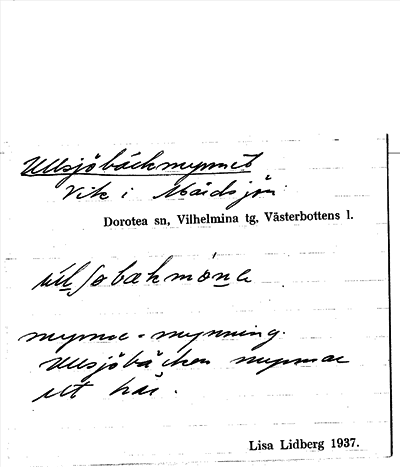 Ullsjöbäckmynnet
Vik i Mårdsjön
Dorotea sn, Vilhelmina tg, Västerbottens l.
mynne = mynning.
Ullsjöbäcken mynnar
ut här.
Lisa Lidberg 1937.